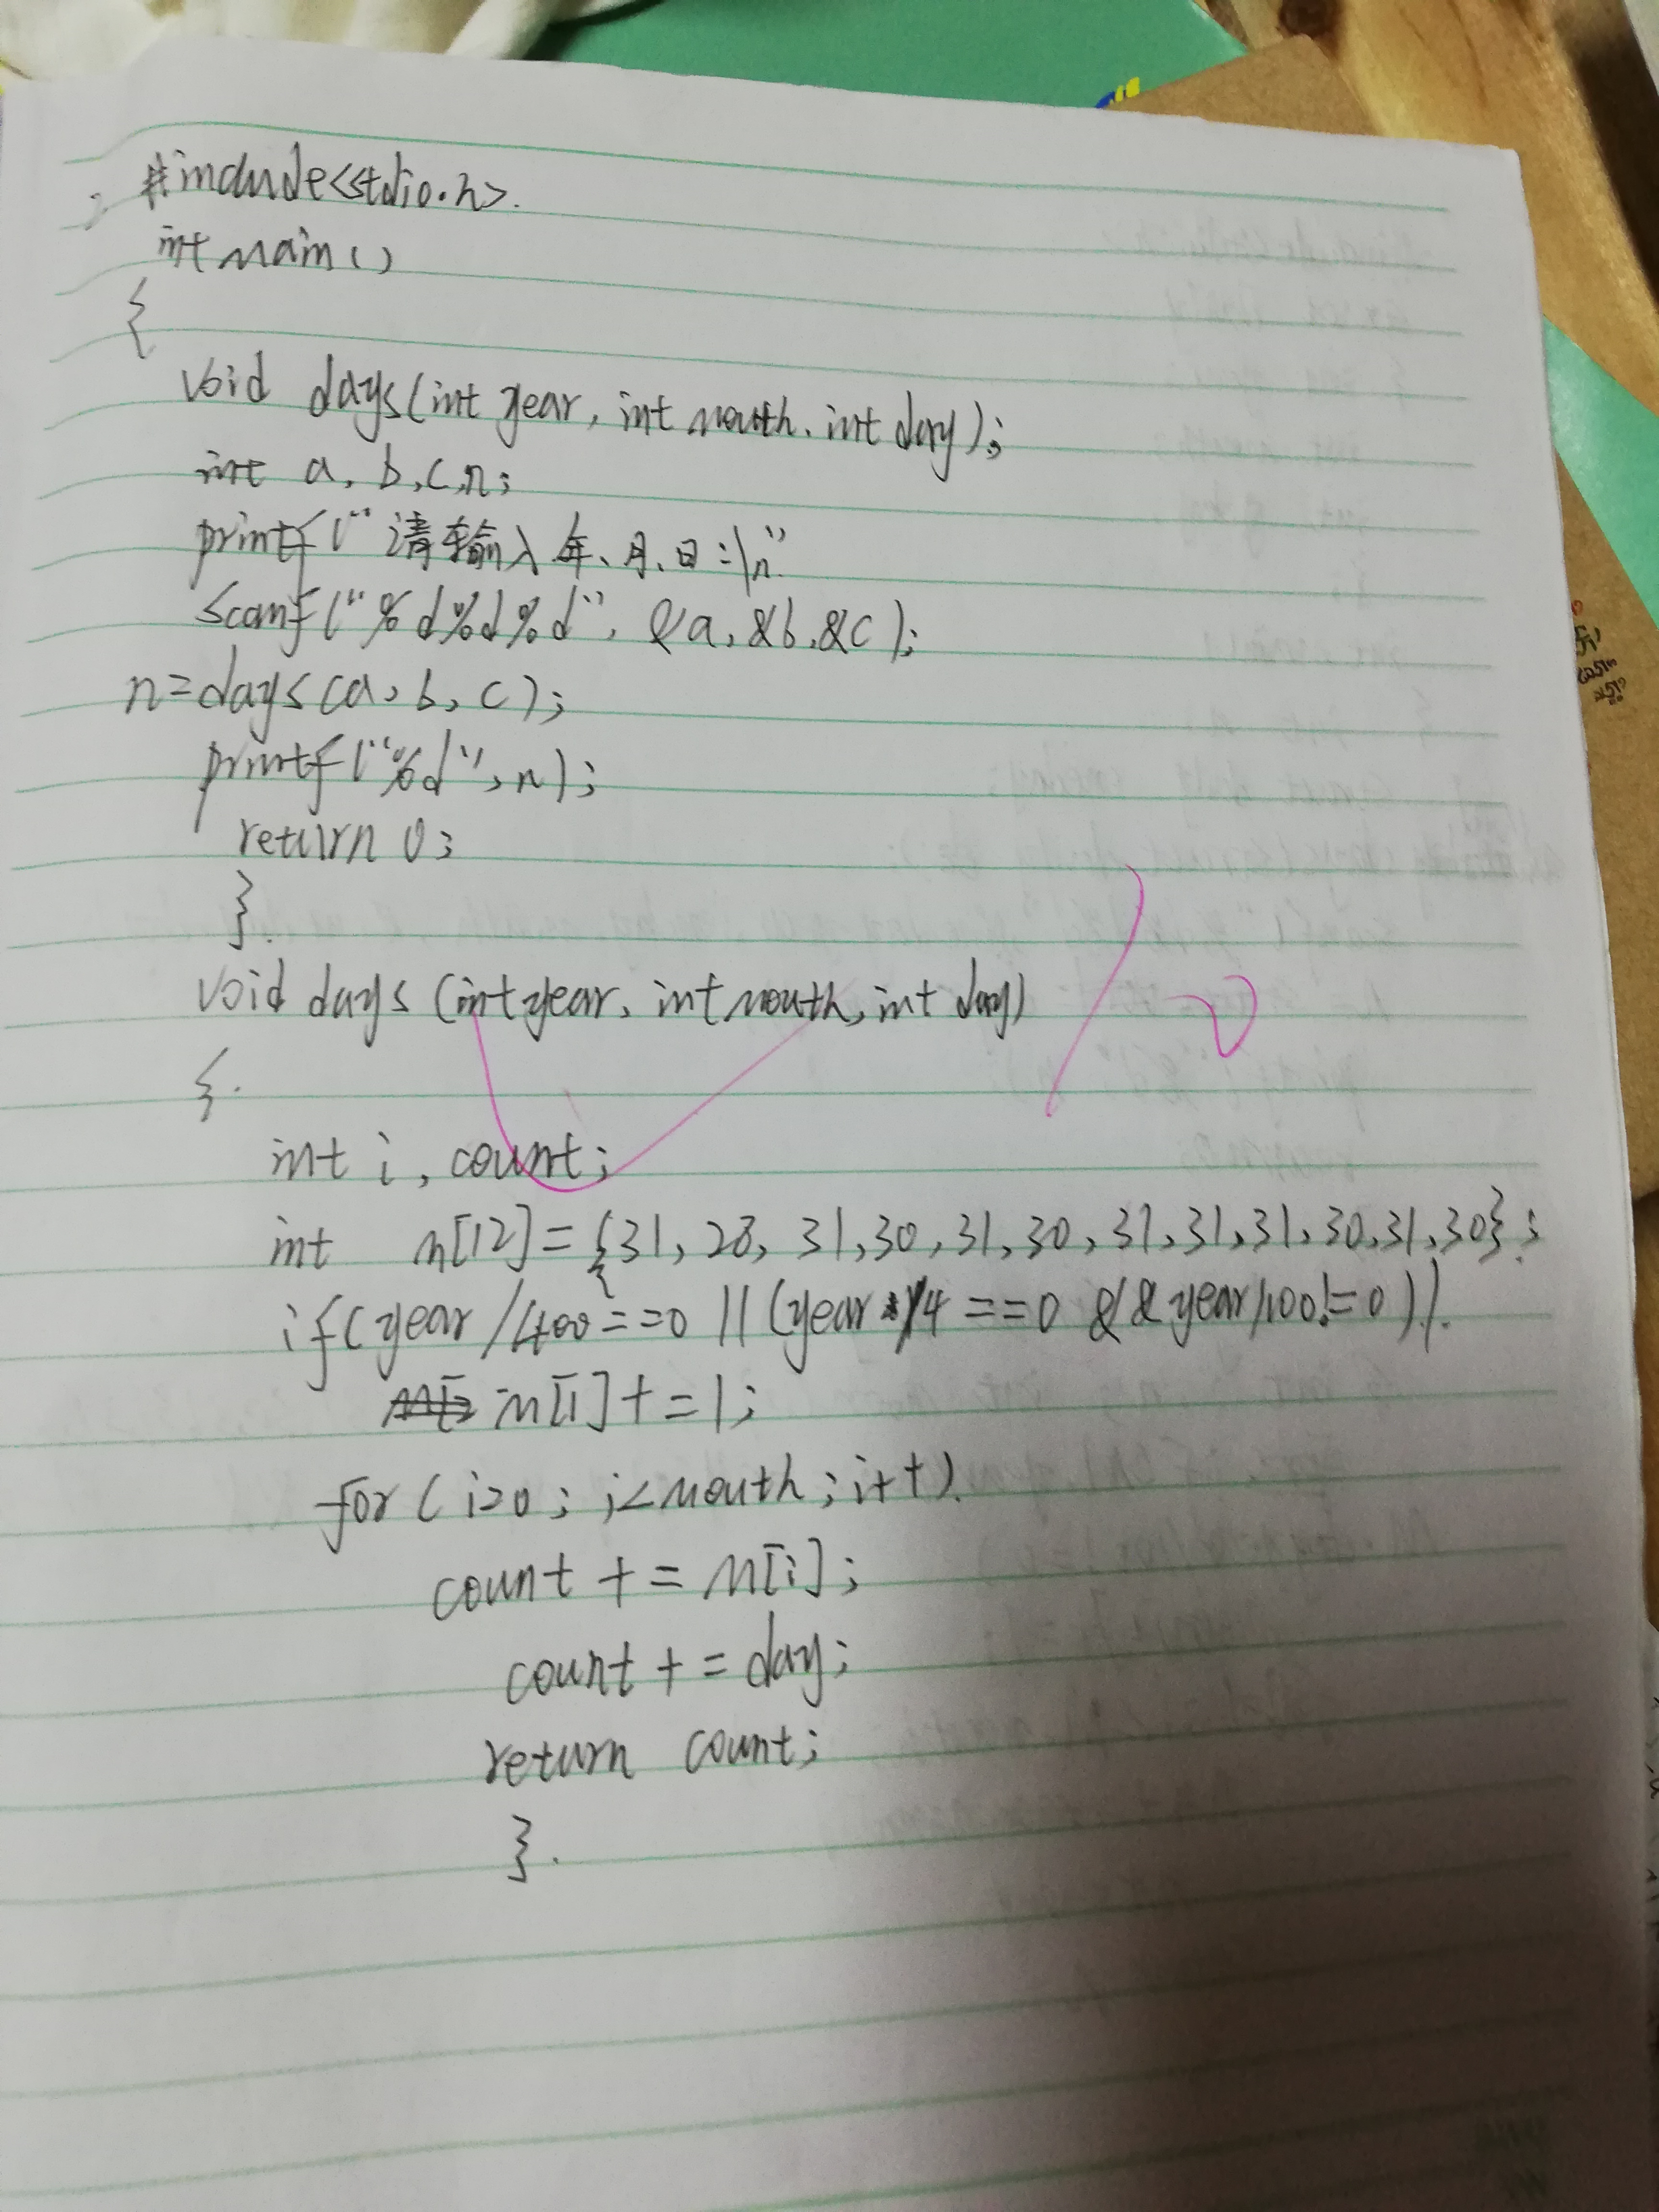 #include<stdio.h>.
int main()
{
void days(int year, int mouth, int day);
int a, b, c, n;
printf("请输入年、月、日:\n"
scanf("%d%d%d", &a, &b, &c);
n=days(a, b, c);
printf("%d", n);
return 0;
}.
void days (int year, int mouth, int day)
{.
int i, count;
int m[12]={31, 28, 31, 30, 31, 30, 31, 31, 31, 30, 31, 30};
if(year/400==0 || (year/4==0 && year/100!=0)).
m[1]+=1;
for(i=0; i<mouth; i++).
count += m[i];
count += day;
return count;
}.